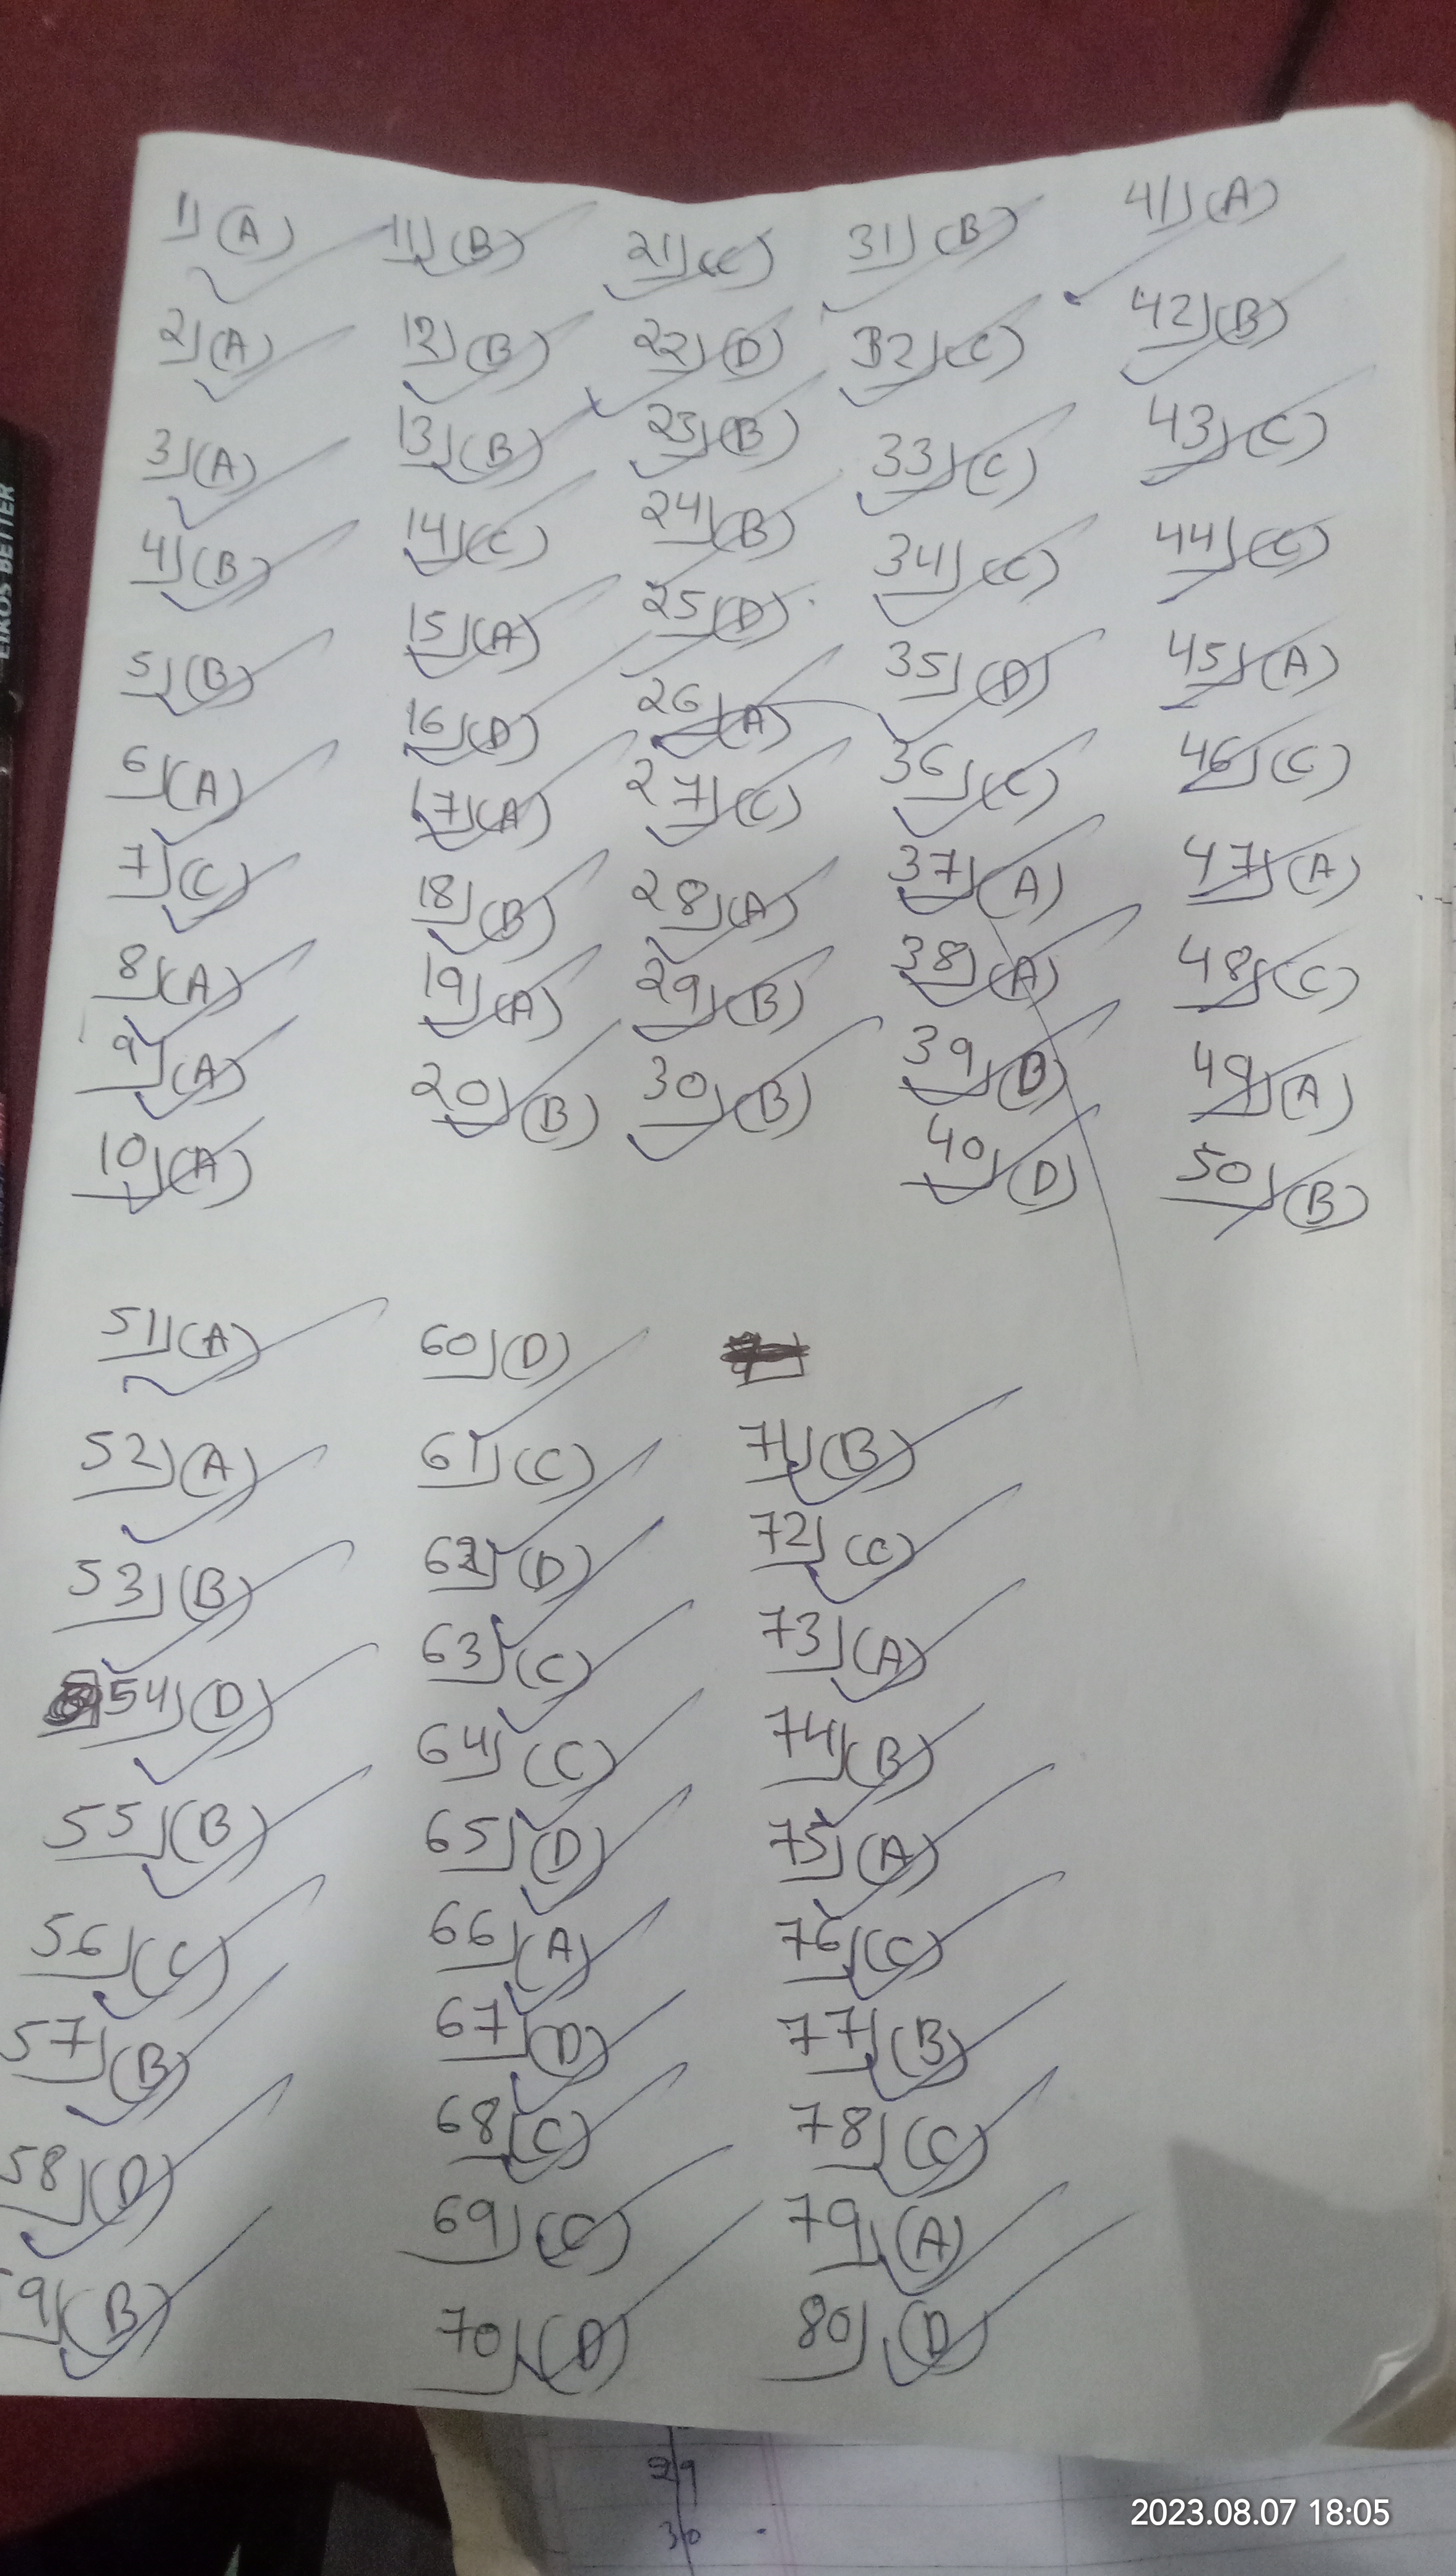 1) (A) 11) (B) 21) (C) 31) (B) 41) (A)
2) (A) 12) (B) 22) (D) 32) (C) 42) (B)
3) (A) 13) (B) 23) (B) 33) (C) 43) (C)
4) (B) 14) (C) 24) (B) 34) (C) 44) (C)
5) (B) 15) (A) 25) (D) 35) (D) 45) (A)
6) (A) 16) (D) 26) (A) 36) (C) 46) (C)
7) (C) 17) (A) 27) (C) 37) (A) 47) (A)
8) (A) 18) (B) 28) (A) 38) (A) 48) (C)
9) (A) 19) (A) 29) (B) 39) 49) (A)
10) (A) 20) (B) 30) (B) 40) (D) 50) (B)
51) (A) 60) (D)
52) (A) 61) (C) 71) (B)
53) (B) 62) (D) 72) (C)
54) (D) 63) (C) 73) (A)
55) (B) 64) (C) 74) (B)
56) (C) 65) (D) 75) (A)
57) (B) 66) (A) 76) (C)
58) (D) 67) (D) 77) (B)
9) (B) 68) (C) 78) (C)
69) (C) 79) (A)
70) (D) 80) (D)
29
30
EIKOS BETTER
2023.08.07 18:05